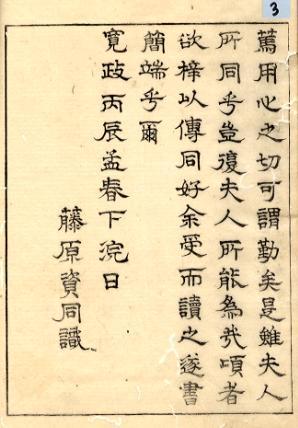 篤用心之切可謂勤矣是雖夫人
所同乎豈復夫人所能為哉頃者
欲梓以傳同好余受而讀之遂書
簡端乎爾
寛政丙辰孟春下浣日
藤原資同識
3